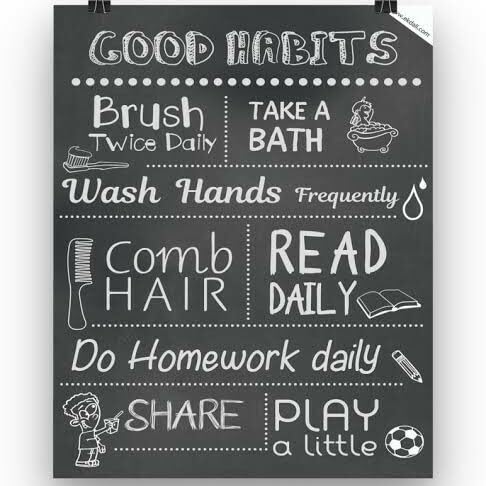 www.ekdali.com
GOOD HABITS
Brush
Twice Daily
TAKE A
BATH
Wash Hands Frequently
Comb
HAIR
READ
DAILY
Do Homework daily
SHARE
PLAY
a little